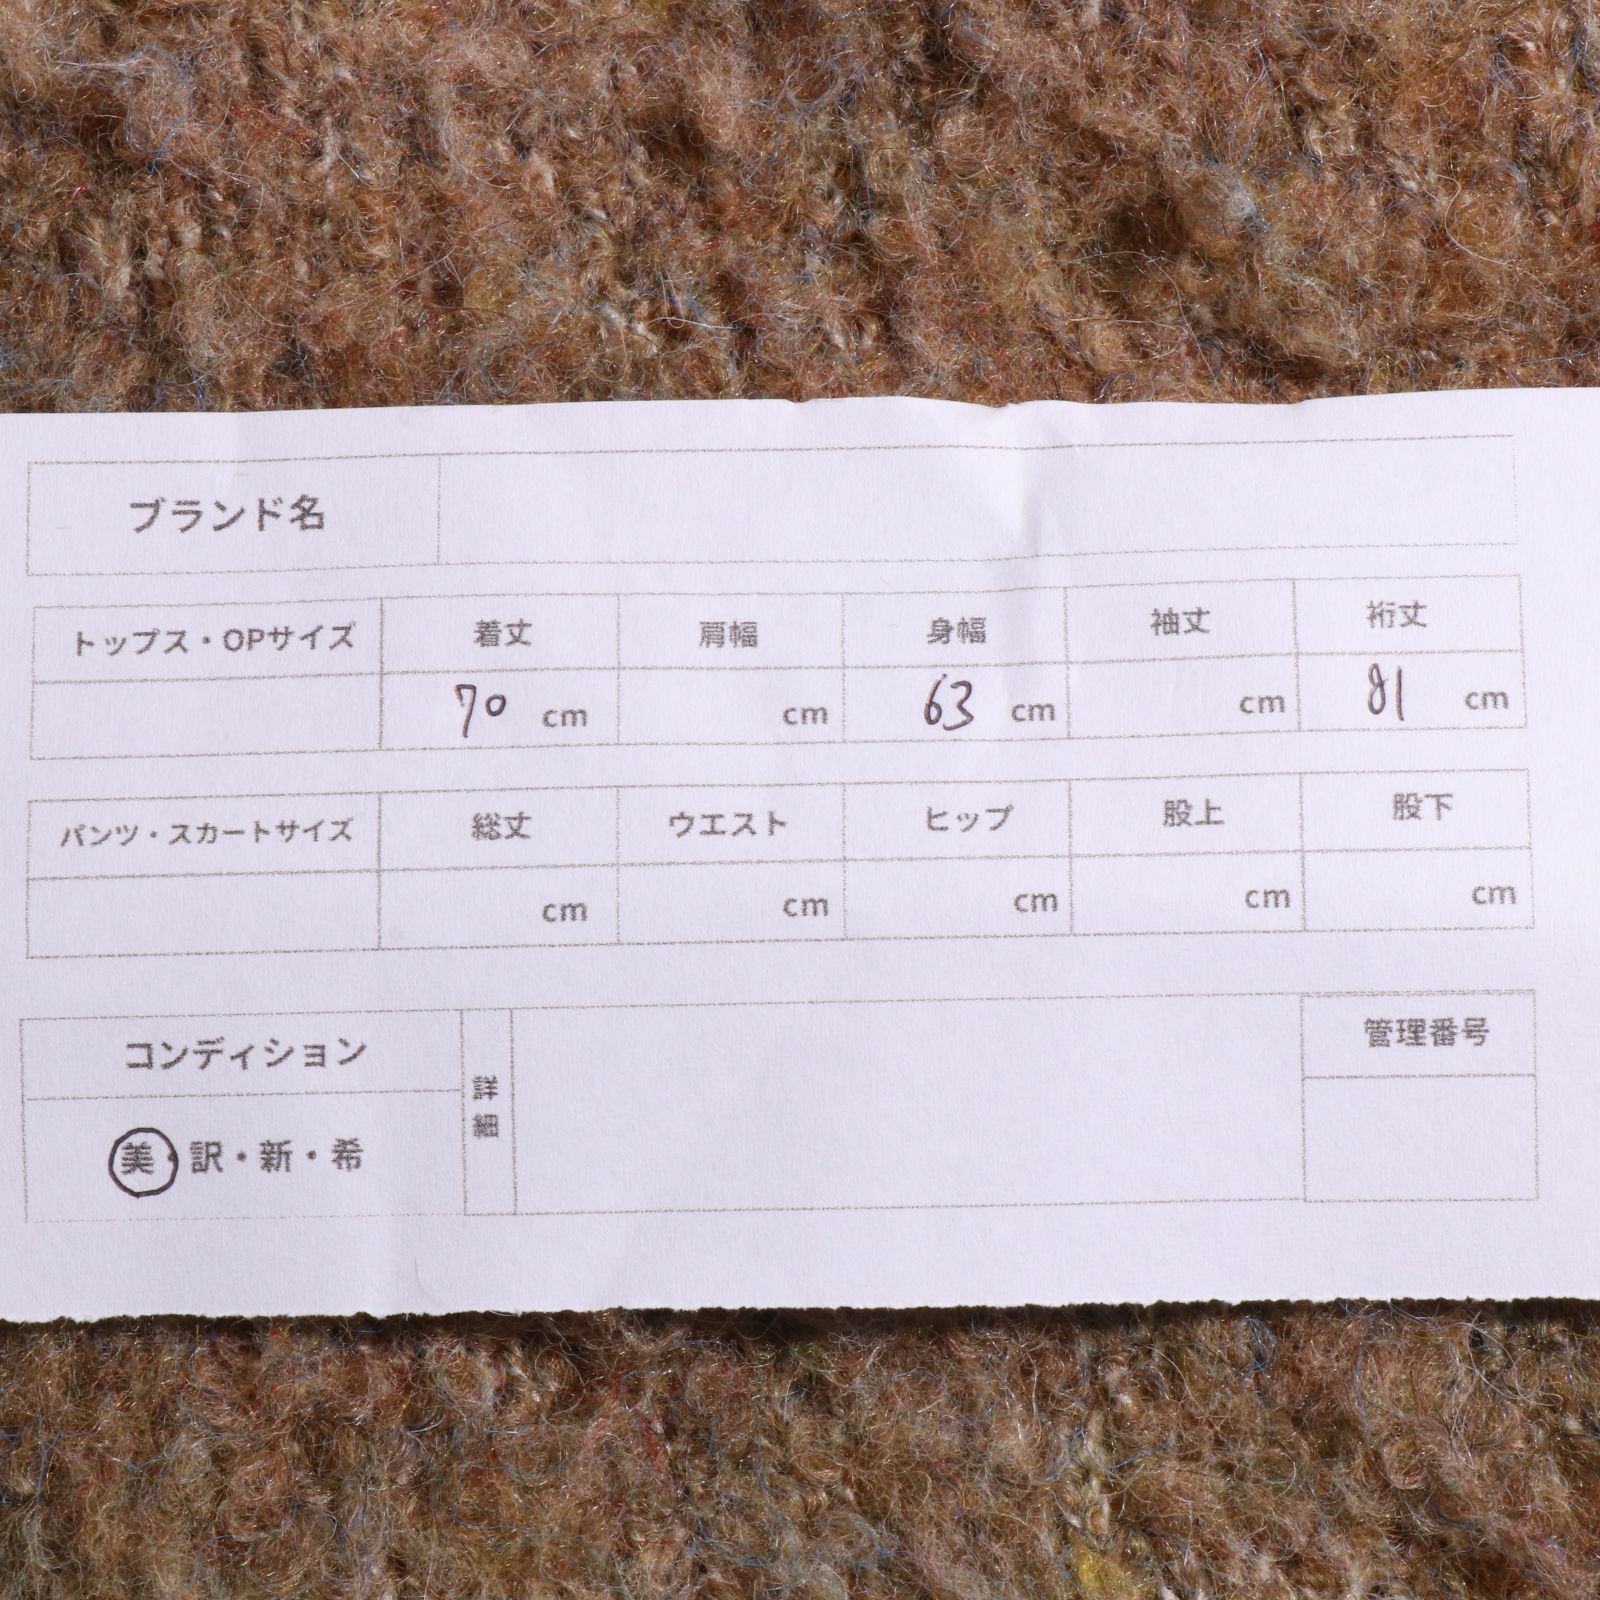 ブランド名
トップス・OPサイズ 着丈 肩幅 身幅 袖丈 裄丈
70 cm cm 63 cm cm 81 cm
パンツ・スカートサイズ 総丈 ウエスト ヒップ 股上 股下
cm cm cm cm cm
コンディション 詳細 管理番号
美・訳・新・希